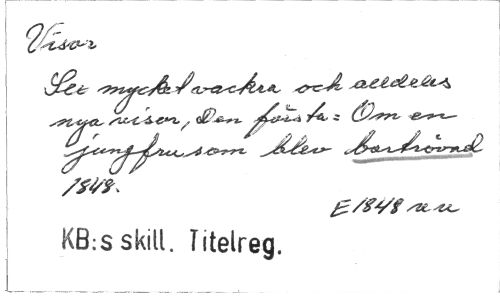 Visor
Sex mycket vackra och alldeles
nya visor, Den första = Om en
jungfru som blev bortrövad
1848.
E 1848 re re
KB:s skill. Titelreg.